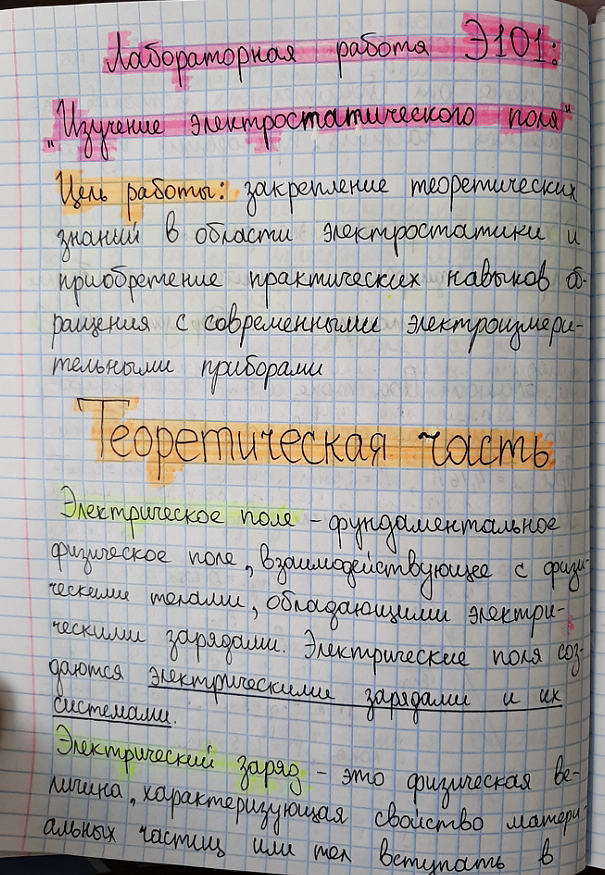 Лабораторная работа Э101:
"Изучение электростатического поля"
Цель работы: закрепление теоретических
знаний в области электростатики и
приобретение практических навыков об-
ращения с современными электроизмери-
тельными приборами
Теоретическая часть
Электрическое поле – фундаментальное
физическое поле, взаимодействующее с физи-
ческими телами, обладающими электри-
ческими зарядами. Электрические поля соз-
даются электрическими зарядами и их
системами.
Электрический заряд – это физическая ве-
личина, характеризующая свойство матери-
альных частиц или тел вступать в